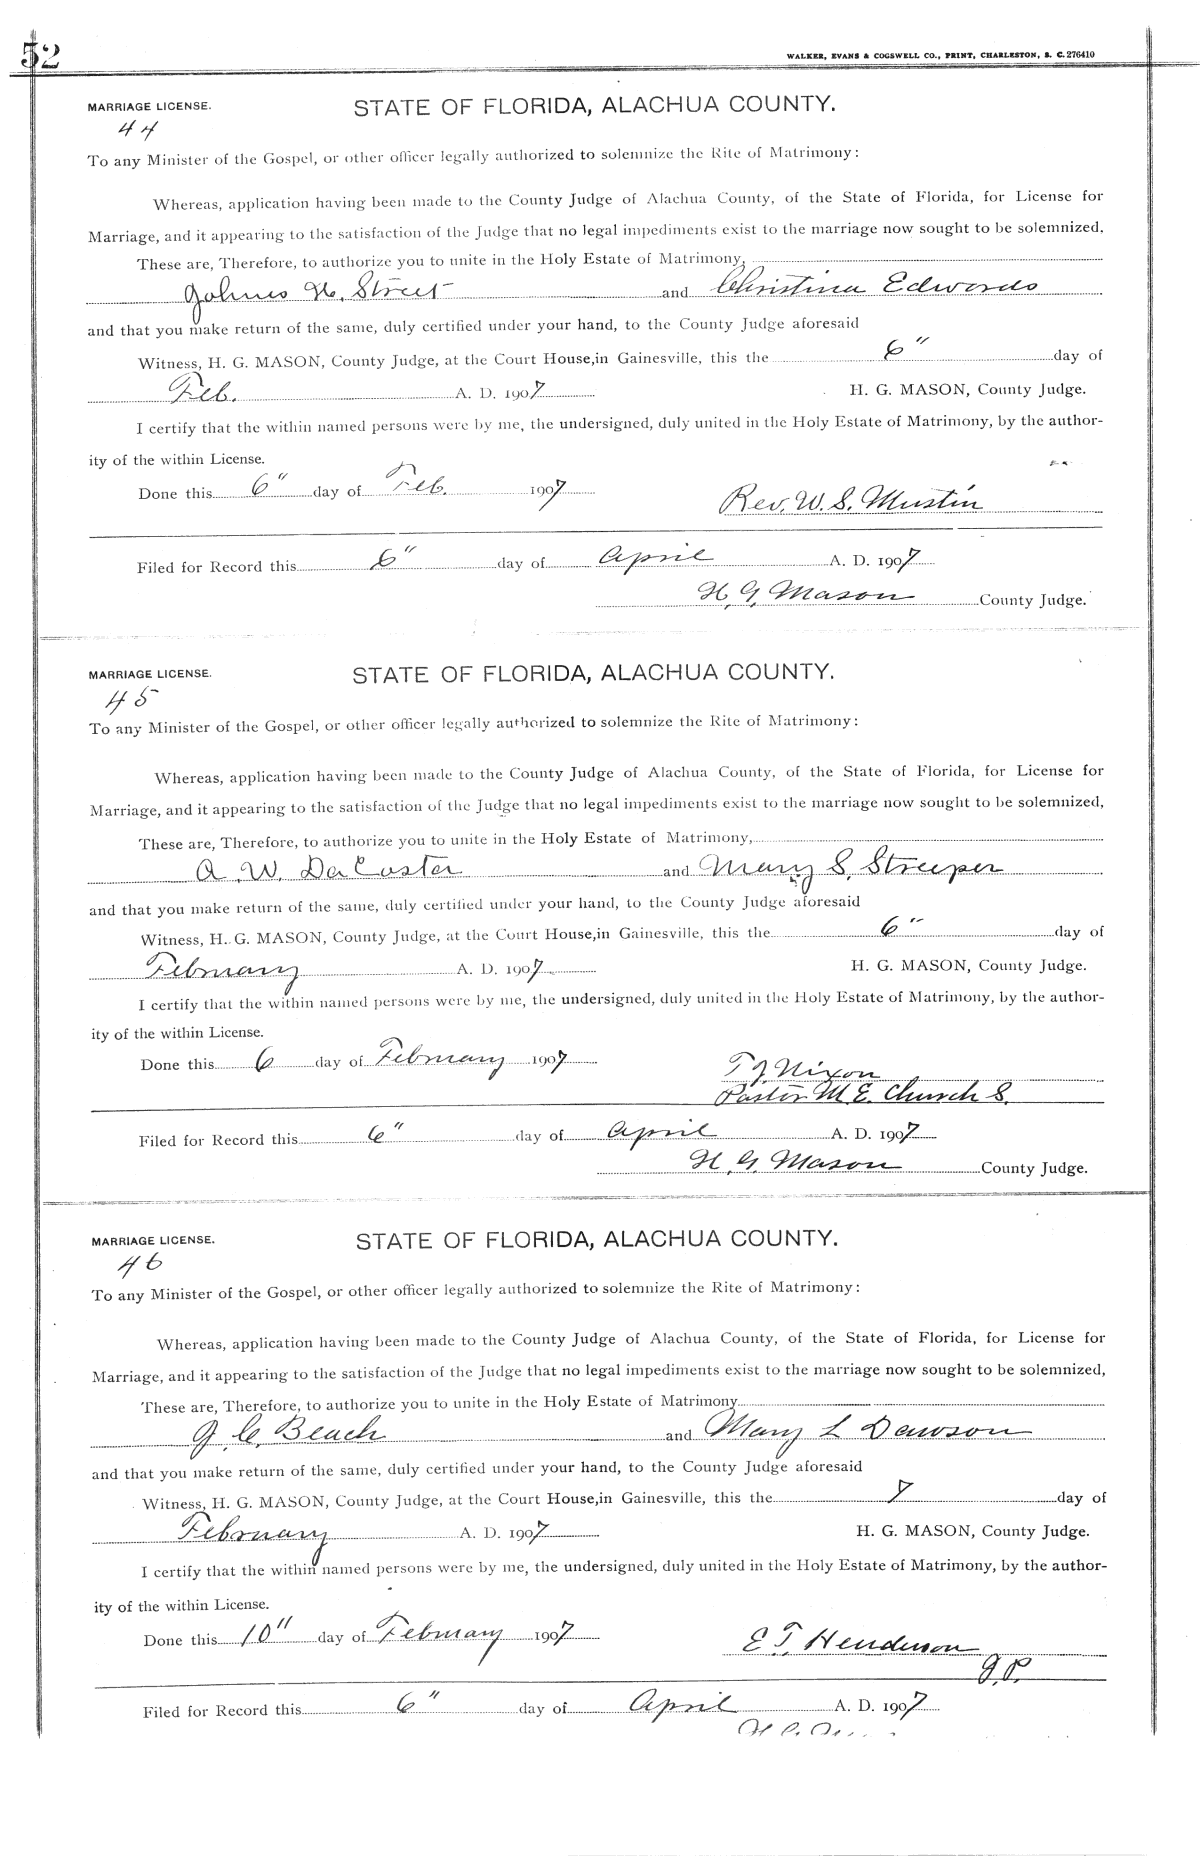 52
WALKER, EVANS & COGSWELL CO., PRINT, CHARLESTON, S. C. 276410
MARRIAGE LICENSE. STATE OF FLORIDA, ALACHUA COUNTY.
44
To any Minister of the Gospel, or other officer legally authorized to solemnize the Rite of Matrimony:
Whereas, application having been made to the County Judge of Alachua County, of the State of Florida, for License for
Marriage, and it appearing to the satisfaction of the Judge that no legal impediments exist to the marriage now sought to be solemnized,
These are, Therefore, to authorize you to unite in the Holy Estate of Matrimony,
H. Street and Christina Edwards
and that you make return of the same, duly certified under your hand, to the County Judge aforesaid
Witness, H. G. MASON, County Judge, at the Court House, in Gainesville, this the 6" day of
Feb. A. D. 1907 H. G. MASON, County Judge.
I certify that the within named persons were by me, the undersigned, duly united in the Holy Estate of Matrimony, by the author-
ity of the within License.
Done this 6" day of Feb. 1907 Rev. W. S. Mustin
Filed for Record this 6" day of April A. D. 1907
H. G. Mason County Judge.
MARRIAGE LICENSE. STATE OF FLORIDA, ALACHUA COUNTY.
45
To any Minister of the Gospel, or other officer legally authorized to solemnize the Rite of Matrimony:
Whereas, application having been made to the County Judge of Alachua County, of the State of Florida, for License for
Marriage, and it appearing to the satisfaction of the Judge that no legal impediments exist to the marriage now sought to be solemnized,
These are, Therefore, to authorize you to unite in the Holy Estate of Matrimony,
A. W. DaCosta and Mary S. Streeper
and that you make return of the same, duly certified under your hand, to the County Judge aforesaid
Witness, H. G. MASON, County Judge, at the Court House, in Gainesville, this the 6" day of
February A. D. 1907 H. G. MASON, County Judge.
I certify that the within named persons were by me, the undersigned, duly united in the Holy Estate of Matrimony, by the author-
ity of the within License.
Done this 6 day of February 1907 T J Nixon
Pastor M. E. Church S.
Filed for Record this 6" day of April A. D. 1907
H. G. Mason County Judge.
MARRIAGE LICENSE. STATE OF FLORIDA, ALACHUA COUNTY.
46
To any Minister of the Gospel, or other officer legally authorized to solemnize the Rite of Matrimony:
Whereas, application having been made to the County Judge of Alachua County, of the State of Florida, for License for
Marriage, and it appearing to the satisfaction of the Judge that no legal impediments exist to the marriage now sought to be solemnized,
These are, Therefore, to authorize you to unite in the Holy Estate of Matrimony
J. C. Beach and Mary L Dawson
and that you make return of the same, duly certified under your hand, to the County Judge aforesaid
Witness, H. G. MASON, County Judge, at the Court House, in Gainesville, this the 7 day of
February A. D. 1907 H. G. MASON, County Judge.
I certify that the within named persons were by me, the undersigned, duly united in the Holy Estate of Matrimony, by the author-
ity of the within License.
Done this 10" day of February 1907 E T. Henderson
J. P.
Filed for Record this 6" day of April A. D. 1907